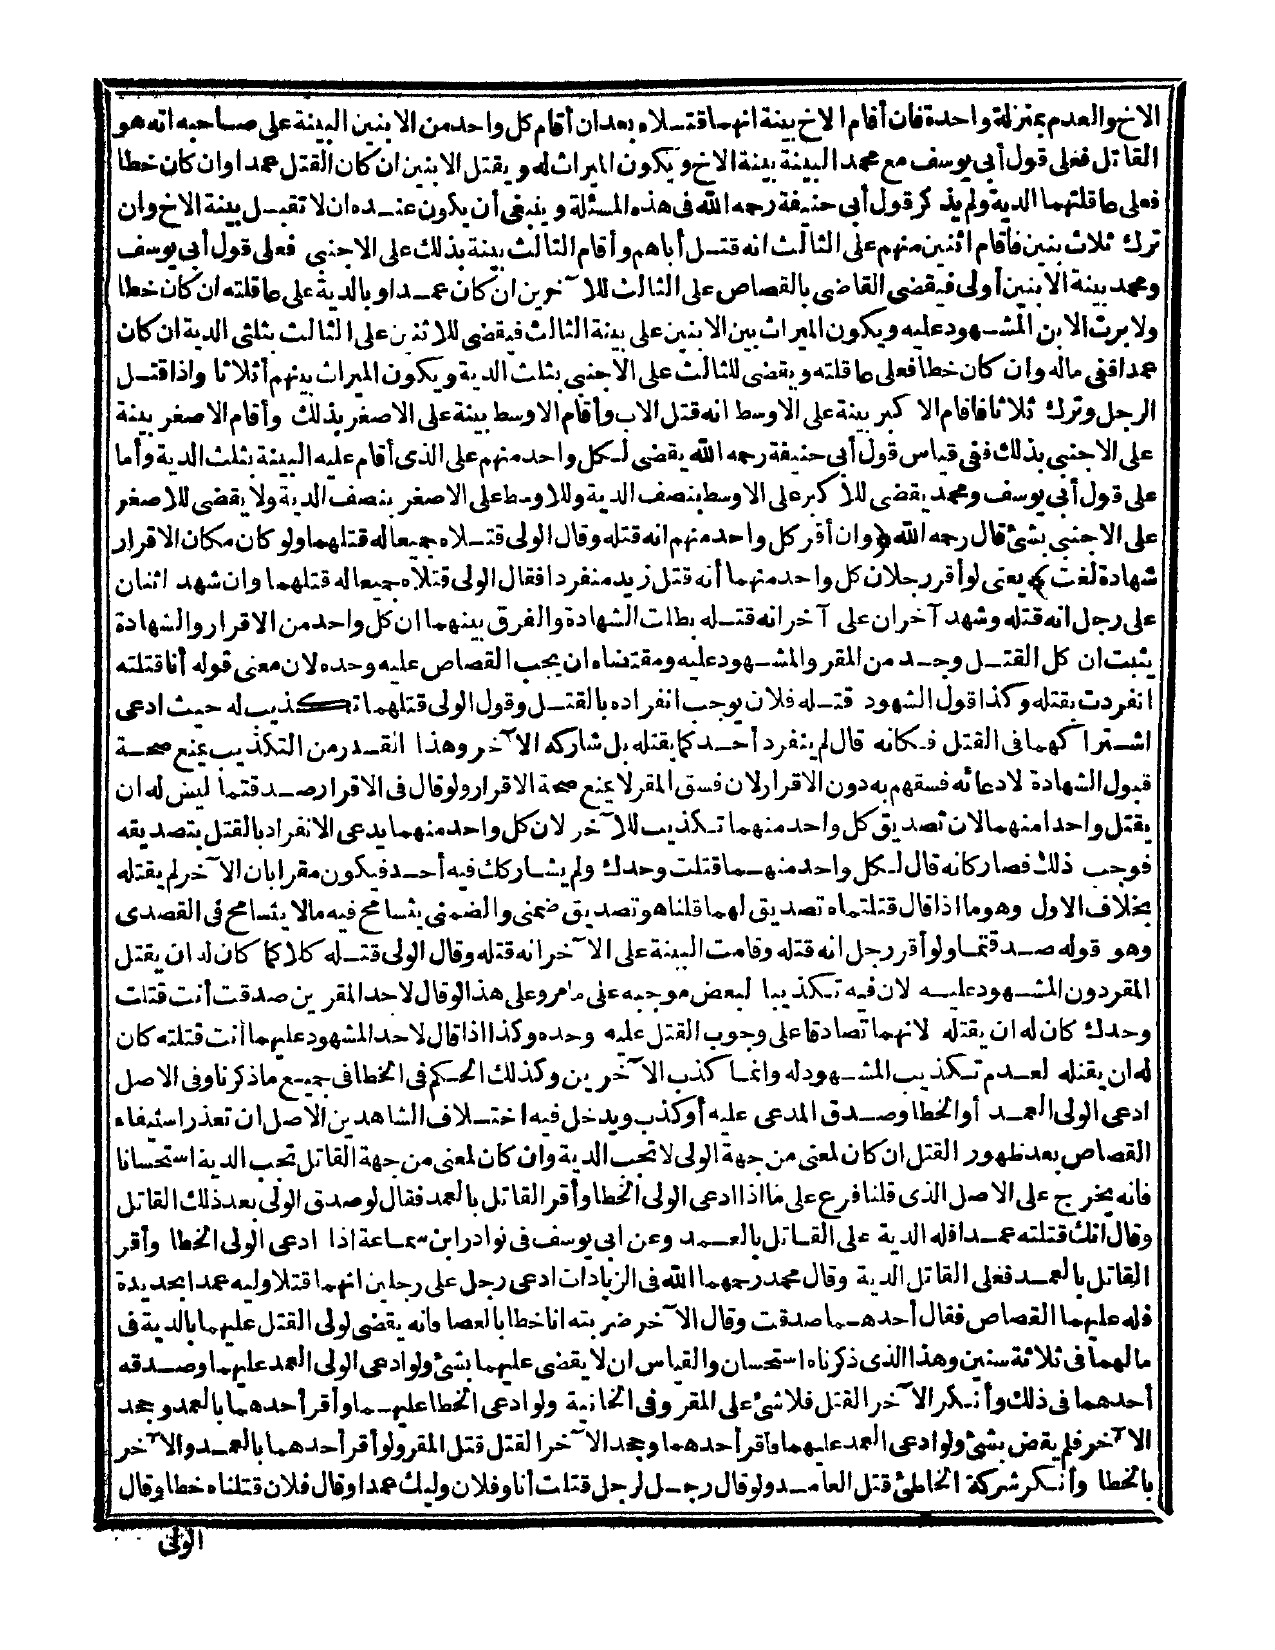 الاخ والعدم بمنزلة واحدة فان أقام الاخ بينة انهما قتلاه بعد ان أقام كل واحد من الابنين البينة على صاحبه انه هو
القاتل فعلى قول أبي يوسف مع محمد البينة بينة الاخ ويكون الميراث له و يقتل الابنين ان كان القتل عمدا وان كان خطا
فعلى عاقلتهما الدية ولم يذكر قول أبى حنيفة رحمه الله فى هذه المسئلة و ينبغى أن يكون عنده ان لا تقبل بينة الاخ وان
ترك ثلاث بنين فأقام اثنين منهم على الثالث انه قتل أباهم وأقام الثالث بينة بذلك على الاجنبى فعلى قول أبى يوسف
ومحمد بينة الابنين أولى فيقضى القاضى بالقصاص على الثالث للآخرين ان كان عمدا و بالدية على عاقلته ان كان خطا
ولا يرث الابن المشهود عليه ويكون الميراث بين الابنين على بينة الثالث فيقضى للاثنين على الثالث بثلثى الدية ان كان
عمدا ففى ماله وان كان خطا فعلى عاقلته ويقضى للثالث على الاجنبى بثلث الدية ويكون الميراث بينهم أثلاثا واذا قتل
الرجل وترك ثلاثا فاقام الاكبر بينة على الاوسط انه قتل الاب وأقام الاوسط بينة على الاصغر بذلك وأقام الاصغر بينة
على الاجنبى بذلك ففى قياس قول أبى حنيفة رحمه الله يقضى لكل واحد منهم على الذى أقام عليه البينة بثلث الدية وأما
على قول أبى يوسف ومحمد يقضى للأكبر على الاوسط بنصف الدية وللاوسط على الاصغر بنصف الدية ولا يقضى للاصغر
على الاجنبى بشئ قال رحمه الله ﴿وان أقر كل واحد منهم انه قتله وقال الولى قتلاه جميعا له قتلهما ولو كان مكان الاقرار
شهادة لغت﴾ يعنى لو أقر رجلان كل واحد منهما أنه قتل زيد منفردا فقال الولى قتلاه جميعا له قتلهما وان شهد اثنان
على رجل انه قتله وشهد آخران على آخر انه قتله بطلت الشهادة والفرق بينهما ان كل واحد من الاقرار والشهادة
يثبت ان كل القتل وجد من المقر والمشهود عليه ومقتضاه ان يجب القصاص عليه وحده لان معنى قوله أنا قتلته
انفردت بقتله وكذا قول الشهود قتله فلان يوجب انفراده بالقتل وقول الولى قتلهما تكذيب له حيث ادعى
اشتراكهما فى القتل فكانه قال لم ينفرد أحد كما بقتله بل شاركه الآخر وهذا القدر من التكذيب يمنع صحة
قبول الشهادة لادعائه فسقهم به دون الاقرار لان فسق المقر لا يمنع صحة الاقرار ولو قال فى الاقرار صدقتما ليس له ان
يقتل واحدا منهما لان تصديق كل واحد منهما تكذيب للآخر لان كل واحد منهما يدعى الانفراد بالقتل بتصديقه
فوجب ذلك فصار كانه قال لكل واحد منهما قتلت وحدك ولم يشاركك فيه أحد فيكون مقرا بان الآخر لم يقتله
بخلاف الاول وهو ما اذا قال قتلتماه تصديق لهما قلنا هو تصديق ضمنى والضمنى يتسامح فيه مالا يتسامح فى القصدى
وهو قوله صدقتما ولو أقر رجل انه قتله وقامت البينة على الآخر انه قتله وقال الولى قتله كلاكما كان له ان يقتل
المقر دون المشهود عليه لان فيه تكذيبا لبعض موجبه على مامر وعلى هذا لو قال لاحد المقرين صدقت أنت قتلت
وحدك كان له ان يقتله لانهما تصادقا على وجوب القتل عليه وحده وكذا اذا قال لاحد المشهود عليهما أنت قتلته كان
له ان يقتله لعدم تكذيب المشهود له وانما كذب الآخرين وكذلك الحكم فى الخطا فى جميع ما ذكرنا وفى الاصل
ادعى الولى العمد أو الخطا وصدق المدعى عليه أو كذب ويدخل فيه اختلاف الشاهدين الاصل ان تعذر استيفاء
القصاص بعد ظهور القتل ان كان لمعنى من جهة الولى لا تجب الدية وان كان لمعنى من جهة القاتل تجب الدية استحسانا
فانه يخرج على الاصل الذى قلنا فرع على ما اذا ادعى الولى الخطا وأقر القاتل بالعمد فقال لو صدق الولى بعد ذلك القاتل
وقال انك قتلته عمدا فله الدية على القاتل بالعمد وعن ابى يوسف فى نوادر ابن سماعة اذا ادعى الولى الخطا وأقر
القاتل بالعمد فعلى القاتل الدية وقال محمد رحمهما الله فى الزيادات ادعى رجل على رجلين انهما قتلا وليه عمدا بحديدة
فله عليهما القصاص فقال أحدهما صدقت وقال الآخر ضربته انا خطا بالعصا فانه يقضى لولى القتل عليهما بالدية فى
مالهما فى ثلاثة سنين وهذا الذى ذكرناه استحسان والقياس ان لا يقضى عليهما بشئ ولو ادعى الولى العمد عليهما وصدقه
أحدهما فى ذلك وأنكر الآخر القتل فلا شئ على المقر وفى الخانية ولو ادعى الخطا عليهما وأقر أحدهما بالعمد وجحد
الآخر فلم يقض بشئ ولو ادعى العمد عليهما فاقر أحدهما وجحد الآخر القتل قتل المقر ولو أقر أحدهما بالعمد والآخر
بالخطا وأنكر شركة الخاطئ قتل العامد ولو قال رجل لرجل قتلت أنا وفلان وليك عمدا وقال فلان قتلناه خطا وقال
الولى